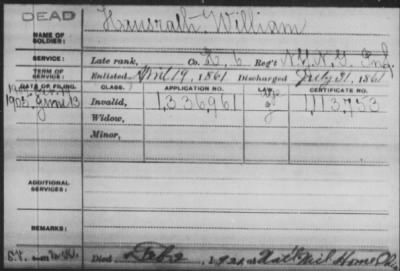 DEAD
NAME OF SOLDIER:
Hausrath, William
SERVICE:
Late rank, Co. 6 Reg't N.Y.N.G. Inf.
TERM OF SERVICE:
Enlisted April 19, 1861 Discharged July 31, 1861
DATE OF FILING.
CLASS.
APPLICATION NO.
LAW.
CERTIFICATE NO.
1905 June 13
Invalid,
1,336,961
1,113,753
Widow,
Minor,
ADDITIONAL SERVICES:
REMARKS:
Died 192 at Nat'l Mil Home